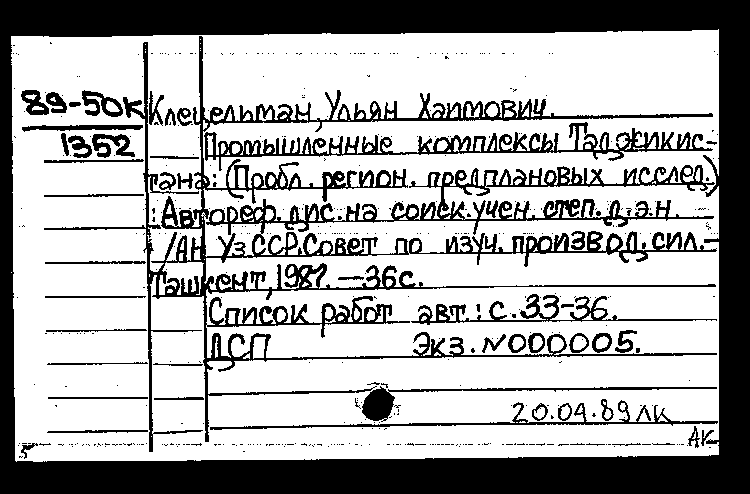 89-50к
1352
Клецельман, Ульян Хаимович.
Промышленные комплексы Таджикис-
тана: (Пробл. регион. предплановых исслед.)
: Автореф. дис. на соиск. учен. степ. д.э.н.
/АН УзССР. Совет по изуч. производ. сил.—
Ташкент, 1987. —36с.
Список работ авт.: с. 33-36.
ДСП Экз. №000005.
20.04.89 лк